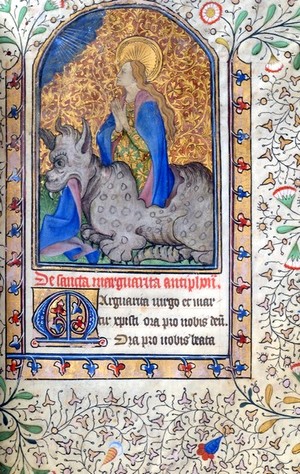 De sancta marguarita antiphon.
Marguarita uirgo et mar
tir xpisti ora pro nobis deũ.
Ora pro nobis beata